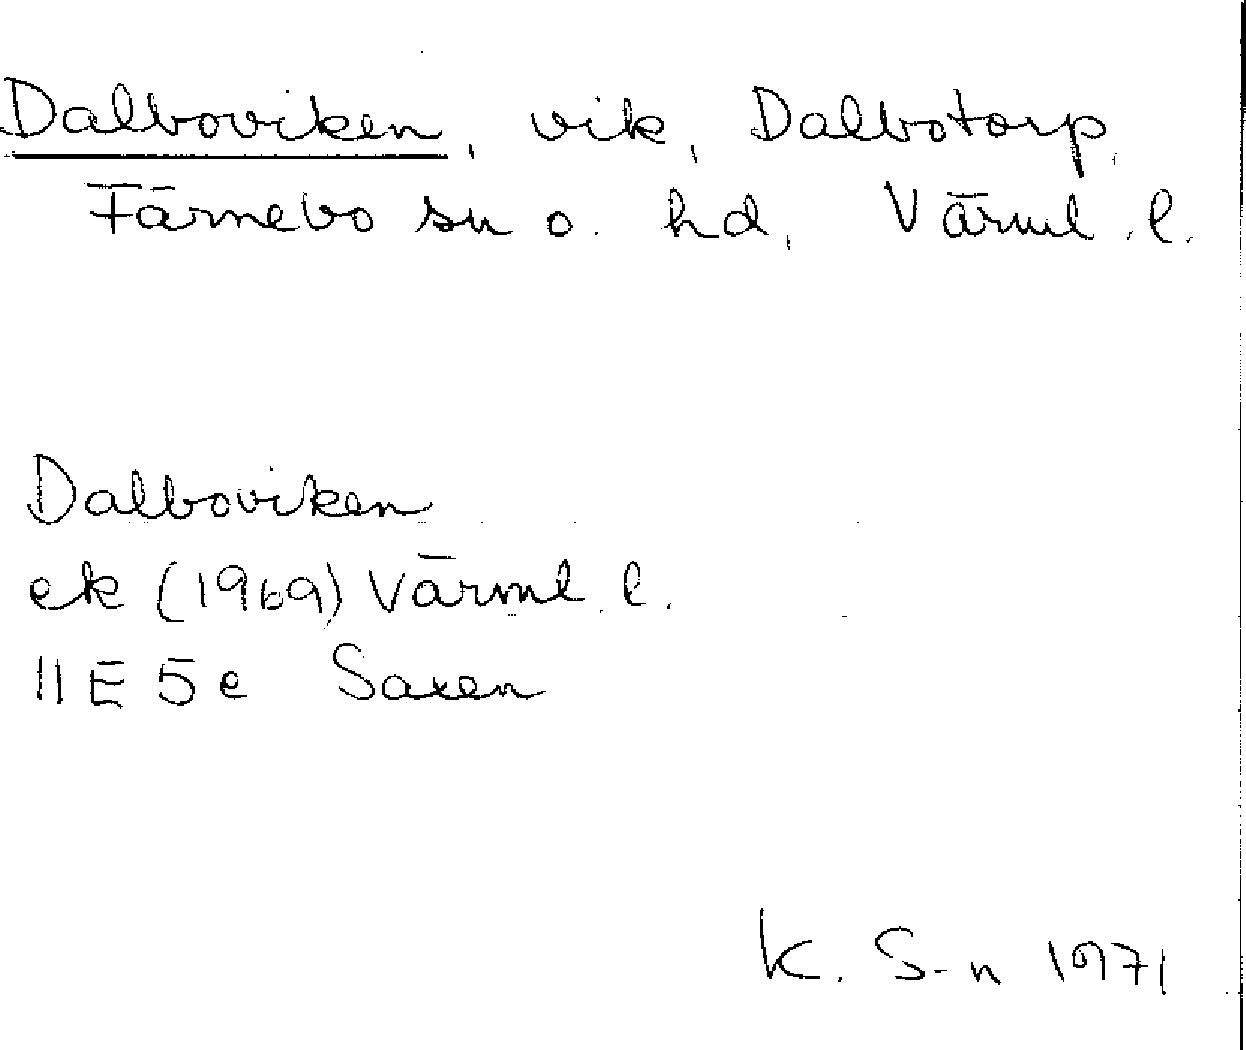 Dalboviken, vik, Dalbotorp,
Färnebo sn o. hd, Värml. l.
Dalboviken
ek (1969) Värml. l.
11E 5e Saxen
K. S-n 1971